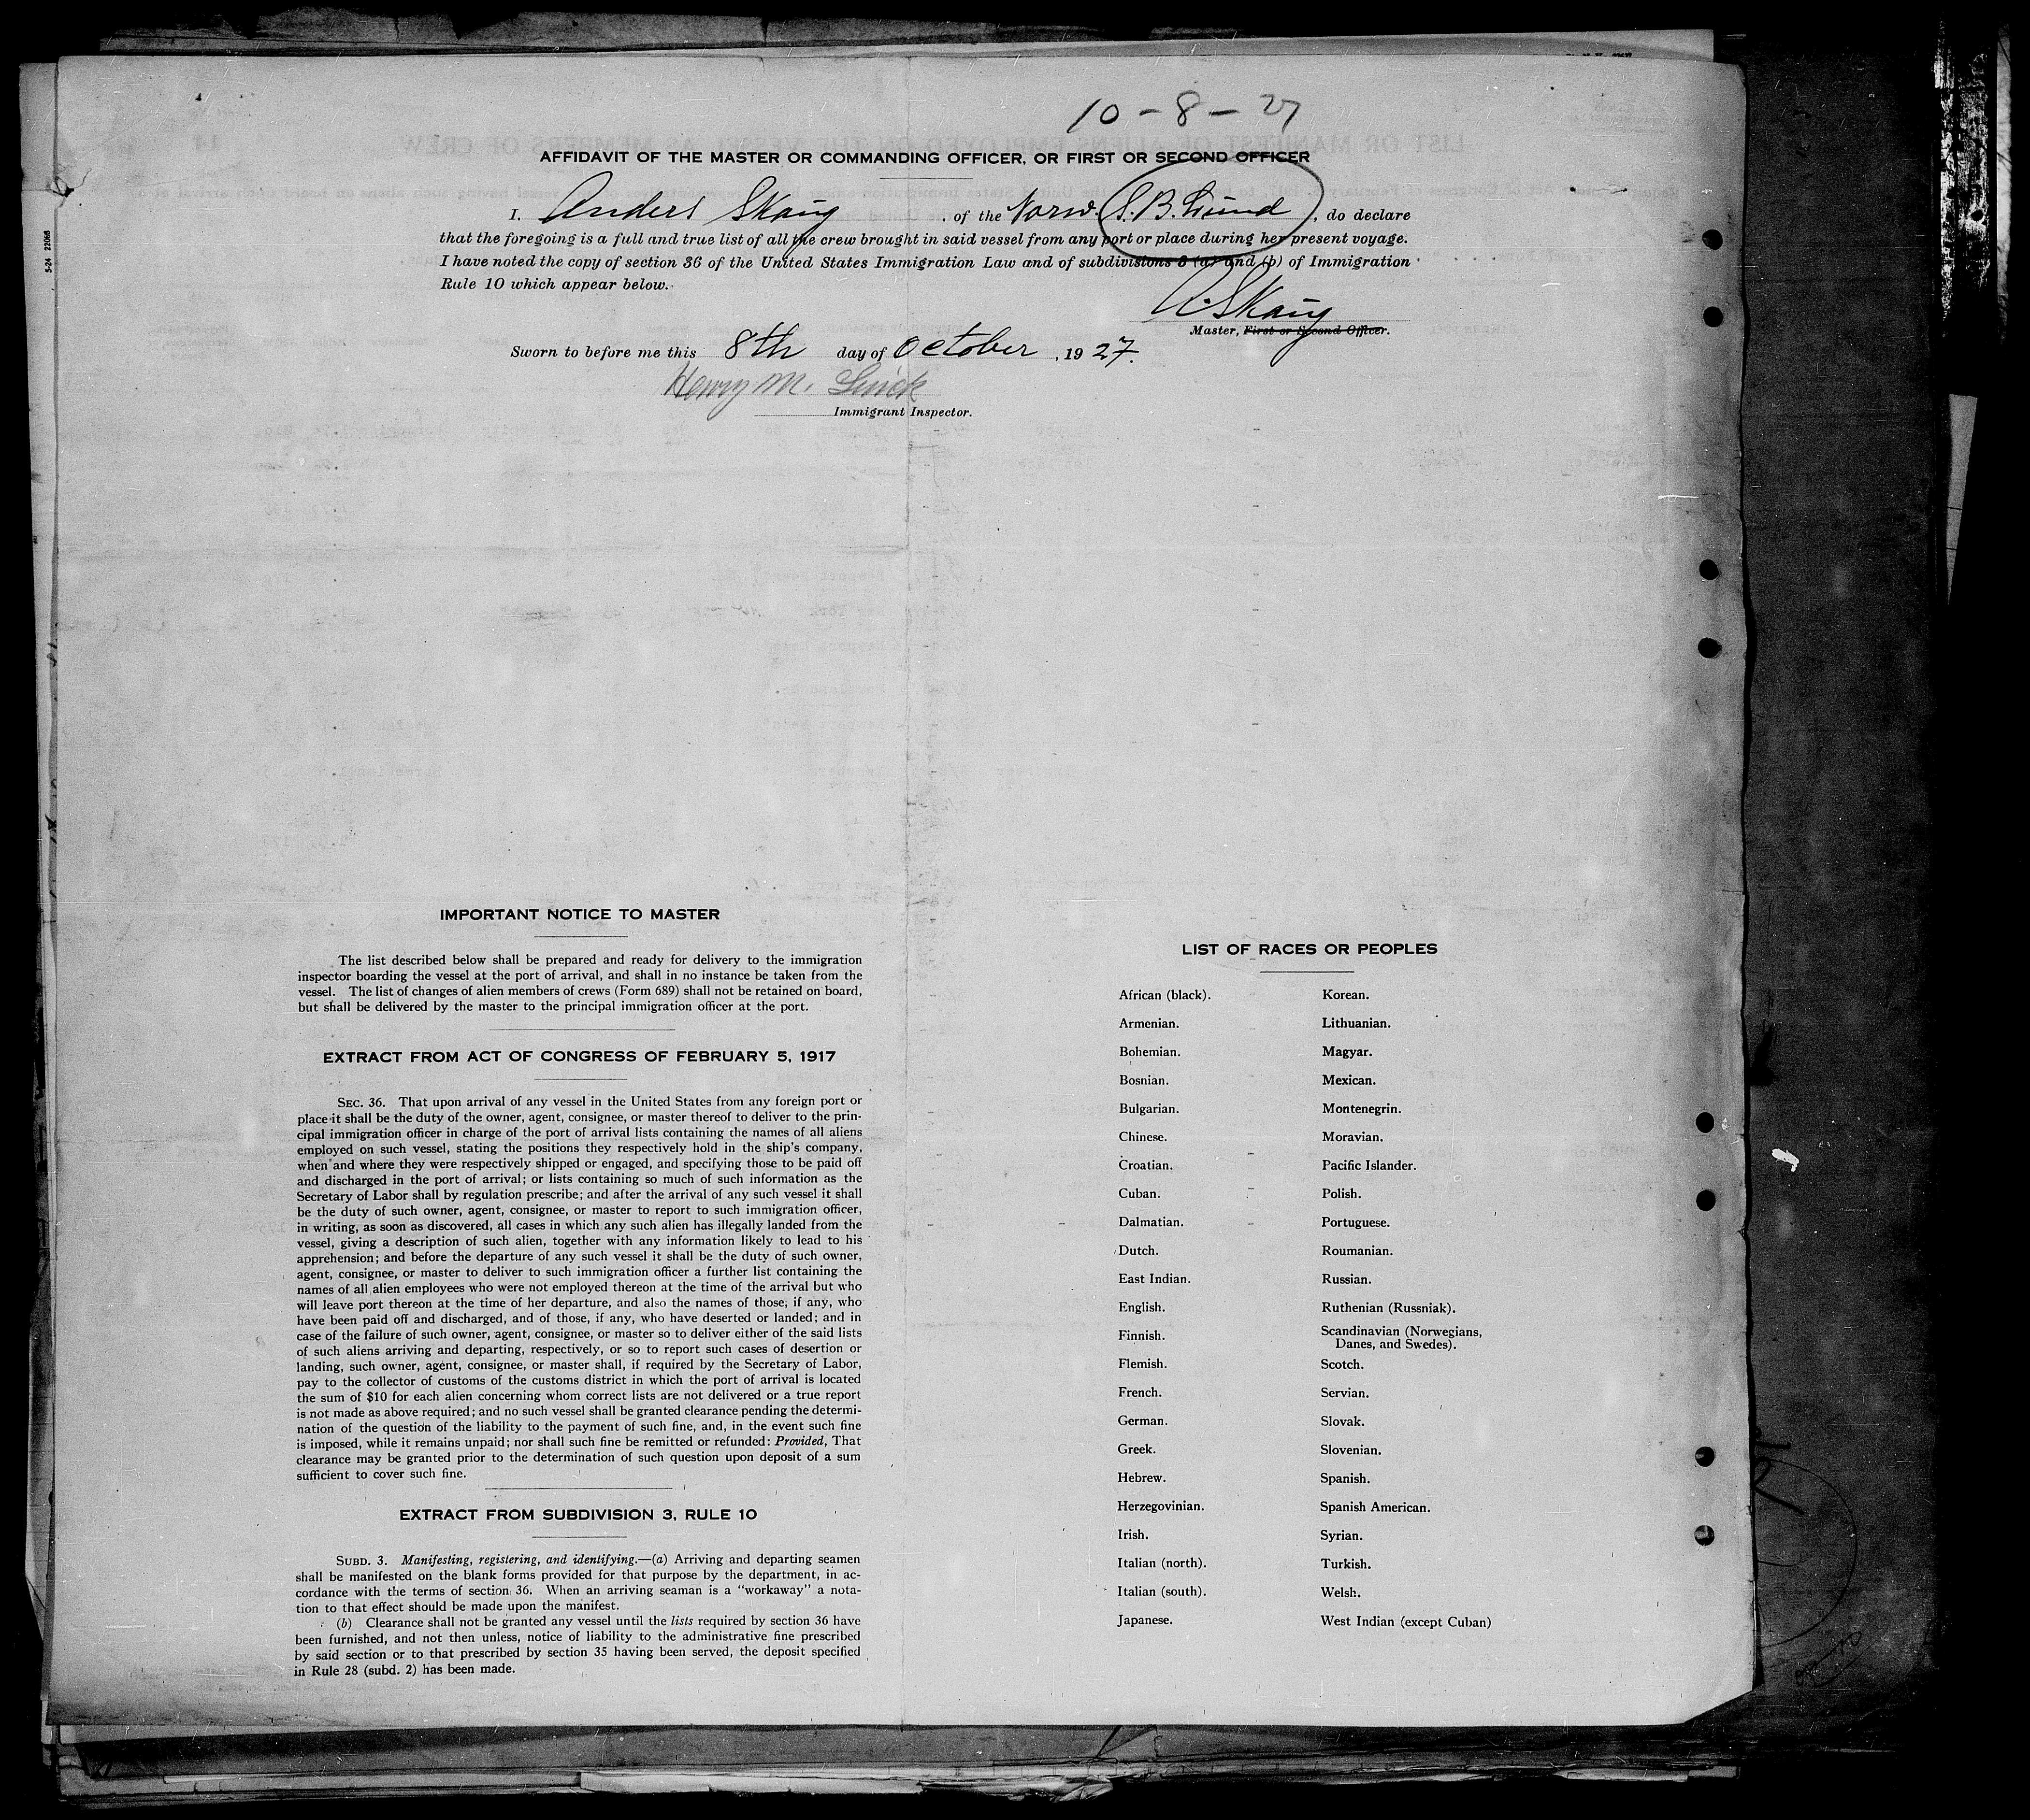 10-8-27
AFFIDAVIT OF THE MASTER OR COMMANDING OFFICER, OR FIRST OR SECOND OFFICER
I, Anders Skaug, of the Norw. S.B. Lund, do declare
that the foregoing is a full and true list of all the crew brought in said vessel from any port or place during her present voyage.
I have noted the copy of section 36 of the United States Immigration Law and of subdivisions 3 (a) and (b) of Immigration
Rule 10 which appear below.
A. Skaug
Master, First or Second Officer.
Sworn to before me this 8th day of October, 1927.
Henry M.
Immigrant Inspector.
5-24 22068
IMPORTANT NOTICE TO MASTER
The list described below shall be prepared and ready for delivery to the immigration
inspector boarding the vessel at the port of arrival, and shall in no instance be taken from the
vessel. The list of changes of alien members of crews (Form 689) shall not be retained on board,
but shall be delivered by the master to the principal immigration officer at the port.
EXTRACT FROM ACT OF CONGRESS OF FEBRUARY 5, 1917
SEC. 36. That upon arrival of any vessel in the United States from any foreign port or
place it shall be the duty of the owner, agent, consignee, or master thereof to deliver to the prin-
cipal immigration officer in charge of the port of arrival lists containing the names of all aliens
employed on such vessel, stating the positions they respectively hold in the ship's company,
when and where they were respectively shipped or engaged, and specifying those to be paid off
and discharged in the port of arrival; or lists containing so much of such information as the
Secretary of Labor shall by regulation prescribe; and after the arrival of any such vessel it shall
be the duty of such owner, agent, consignee, or master to report to such immigration officer,
in writing, as soon as discovered, all cases in which any such alien has illegally landed from the
vessel, giving a description of such alien, together with any information likely to lead to his
apprehension; and before the departure of any such vessel it shall be the duty of such owner,
agent, consignee, or master to deliver to such immigration officer a further list containing the
names of all alien employees who were not employed thereon at the time of the arrival but who
will leave port thereon at the time of her departure, and also the names of those, if any, who
have been paid off and discharged, and of those, if any, who have deserted or landed; and in
case of the failure of such owner, agent, consignee, or master so to deliver either of the said lists
of such aliens arriving and departing, respectively, or so to report such cases of desertion or
landing, such owner, agent, consignee, or master shall, if required by the Secretary of Labor,
pay to the collector of customs of the customs district in which the port of arrival is located
the sum of $10 for each alien concerning whom correct lists are not delivered or a true report
is not made as above required; and no such vessel shall be granted clearance pending the determi-
nation of the question of the liability to the payment of such fine, and, in the event such fine
is imposed, while it remains unpaid; nor shall such fine be remitted or refunded: Provided, That
clearance may be granted prior to the determination of such question upon deposit of a sum
sufficient to cover such fine.
EXTRACT FROM SUBDIVISION 3, RULE 10
SUBD. 3. Manifesting, registering, and identifying.—(a) Arriving and departing seamen
shall be manifested on the blank forms provided for that purpose by the department, in ac-
cordance with the terms of section 36. When an arriving seaman is a "workaway" a nota-
tion to that effect should be made upon the manifest.
(b) Clearance shall not be granted any vessel until the lists required by section 36 have
been furnished, and not then unless, notice of liability to the administrative fine prescribed
by said section or to that prescribed by section 35 having been served, the deposit specified
in Rule 28 (subd. 2) has been made.
LIST OF RACES OR PEOPLES
African (black). Korean.
Armenian. Lithuanian.
Bohemian. Magyar.
Bosnian. Mexican.
Bulgarian. Montenegrin.
Chinese. Moravian.
Croatian. Pacific Islander.
Cuban. Polish.
Dalmatian. Portuguese.
Dutch. Roumanian.
East Indian. Russian.
English. Ruthenian (Russniak).
Finnish. Scandinavian (Norwegians,
Danes, and Swedes).
Flemish. Scotch.
French. Servian.
German. Slovak.
Greek. Slovenian.
Hebrew. Spanish.
Herzegovinian. Spanish American.
Irish. Syrian.
Italian (north). Turkish.
Italian (south). Welsh.
Japanese. West Indian (except Cuban)